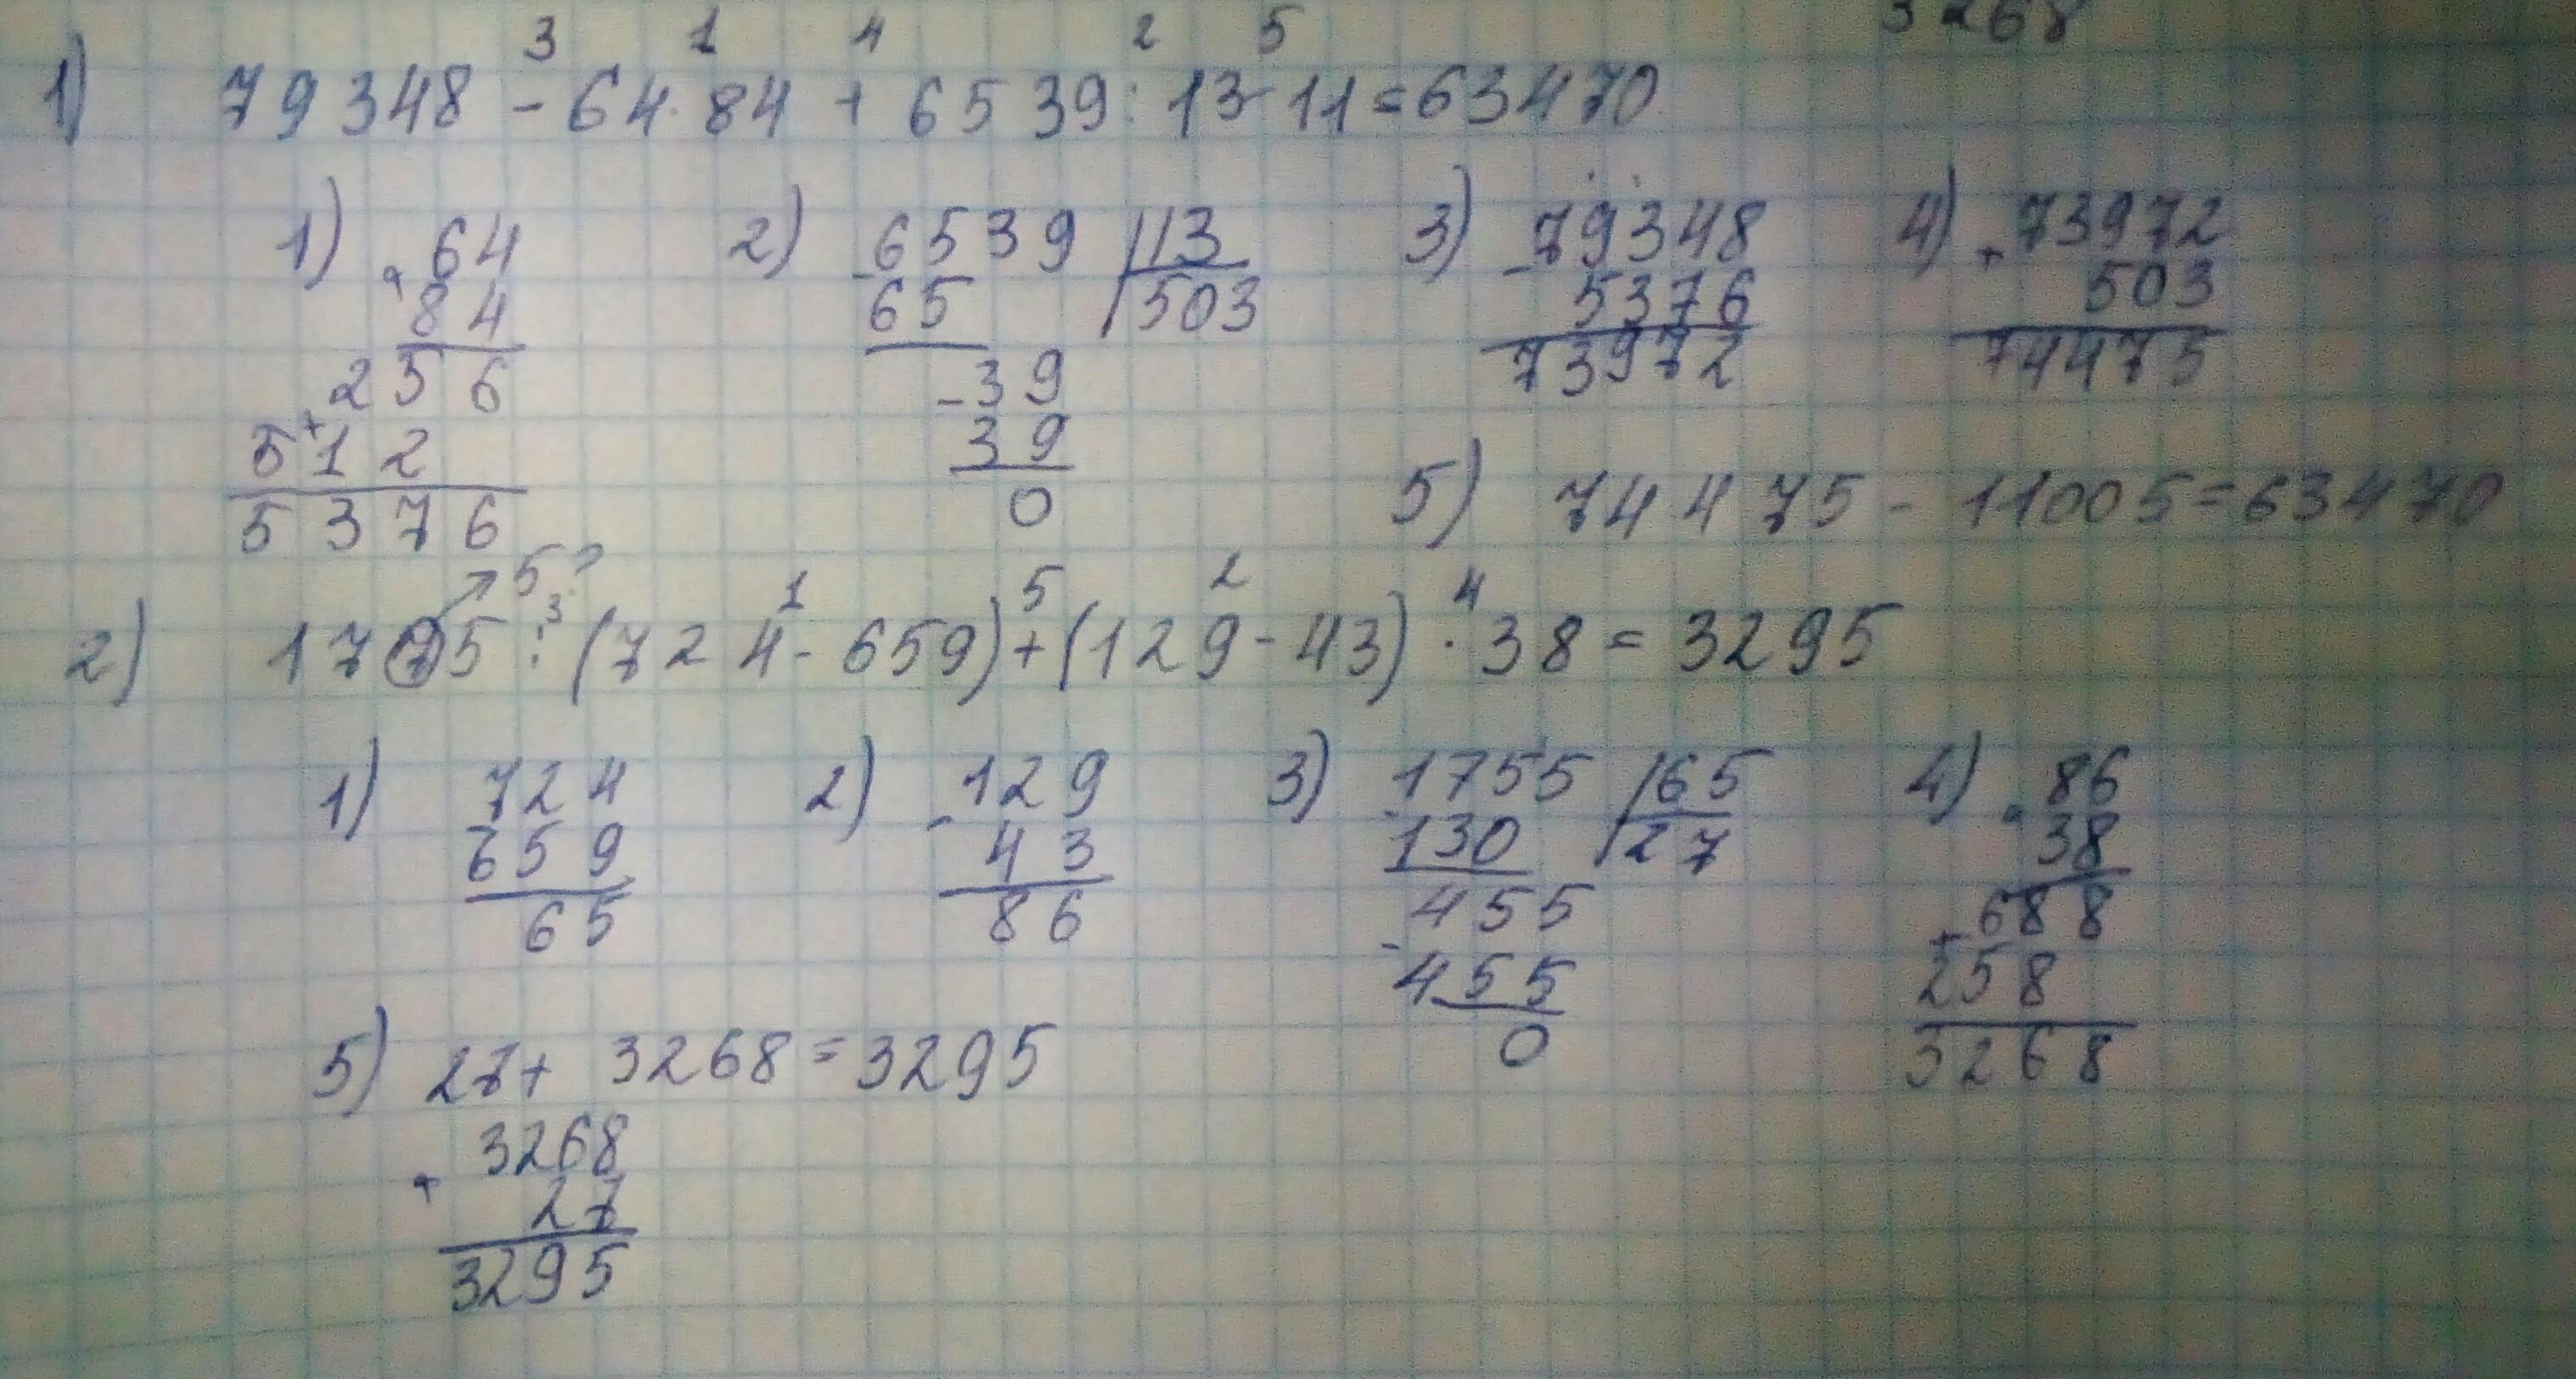 3268
3 1 4 2 5
1) 79348 - 64 · 84 + 6539 : 13 - 11 = 63470
1) 64 2) - 6539 |13 3) - 79348 4) + 73972
· 84 65 |503 5376 503
256 - 39 73972 74475
+ 512 39
5376 0 5) 74475 - 11005 = 63470
5?
3 1 5 2 4
2) 1775 : (724 - 659) + (129 - 43) · 38 = 3295
1) 724 2) - 129 3) - 1755 |65 4) · 86
659 43 130 |27 38
65 86 455 688
- 455 + 258
0 3268
5) 27 + 3268 = 3295
+ 3268
27
3295